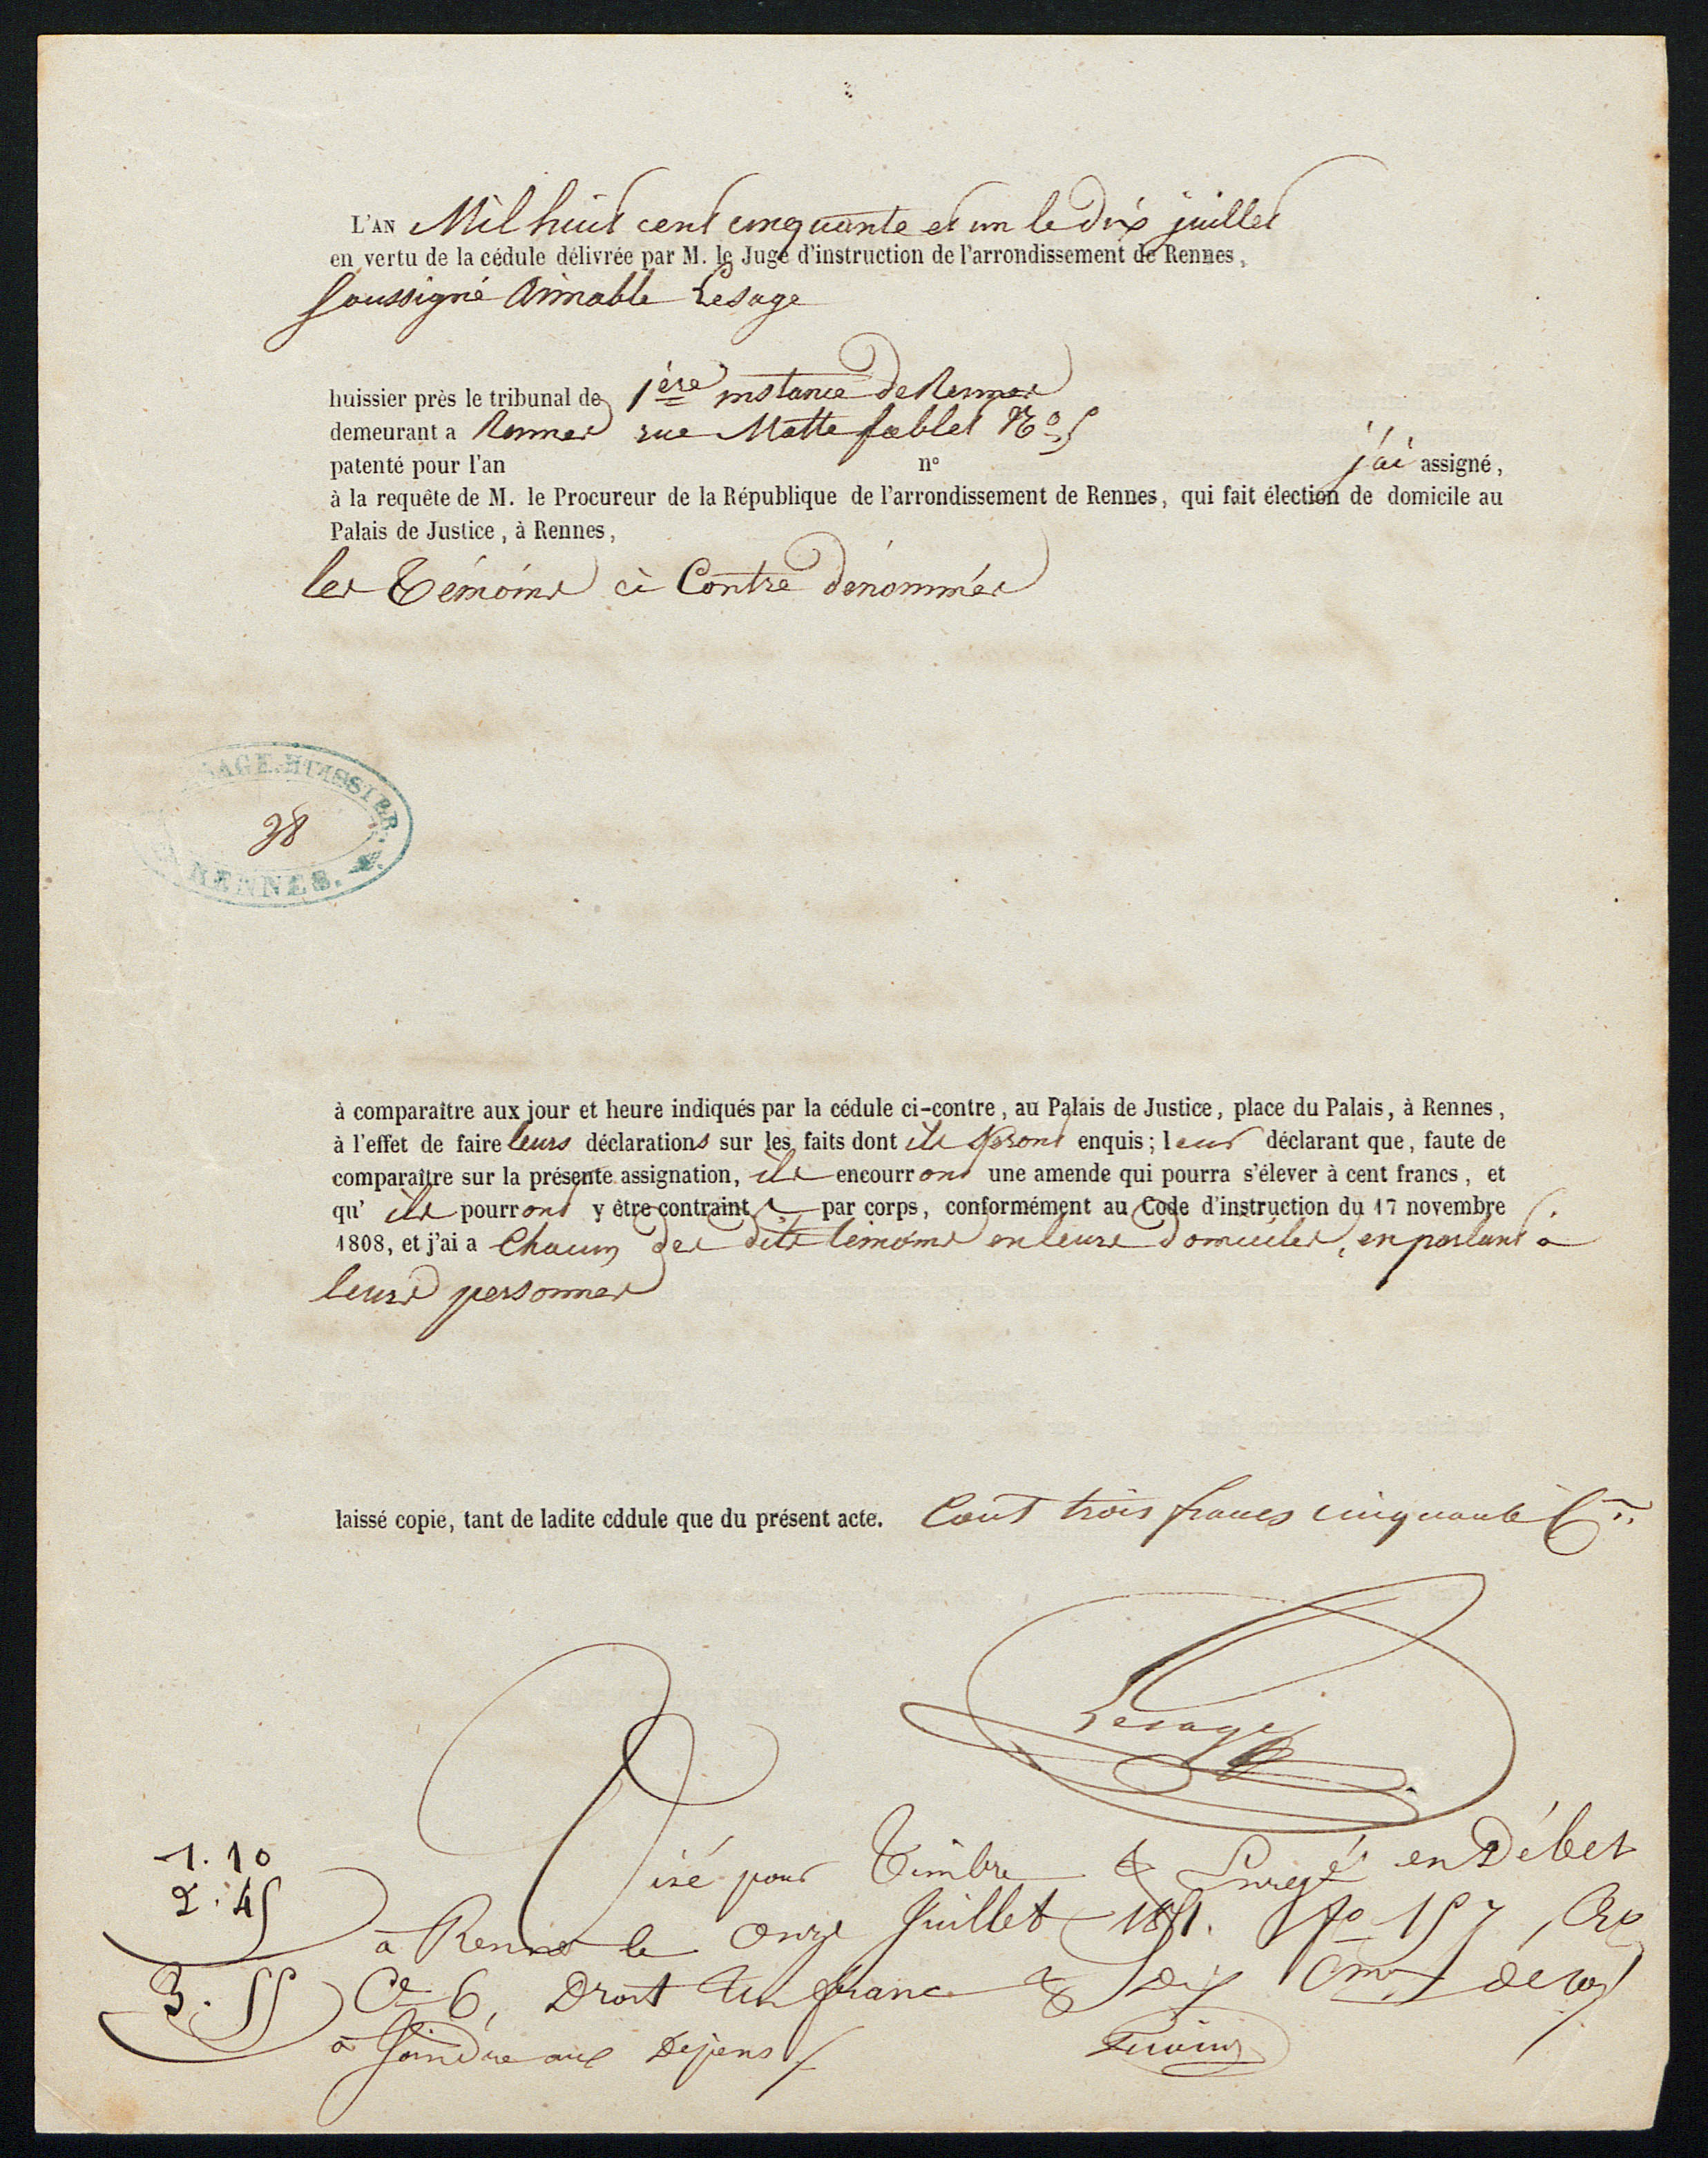 L'AN Mil huit cent cinquante et un le dix juillet
en vertu de la cédule délivrée par M. le Juge d'instruction de l'arrondissement de Rennes,
Soussigné Aimable Lesage
huissier près le tribunal de 1ère instance de Rennes
demeurant a Rennes rue Motte fablet No 5
patenté pour l'an n° j'ai assigné,
à la requête de M. le Procureur de la République de l'arrondissement de Rennes, qui fait élection de domicile au
Palais de Justice, à Rennes,
les Témoins ci Contre dénommés
SAGE. HUISSIER.
38
RENNES.
à comparaître aux jour et heure indiqués par la cédule ci-contre, au Palais de Justice, place du Palais, à Rennes,
à l'effet de faire leurs déclarations sur les faits dont ils seront enquis; leur déclarant que, faute de
comparaître sur la présente assignation, ils encourront une amende qui pourra s'élever à cent francs, et
qu' ils pourront y être contraints par corps, conformément au Code d'instruction du 17 novembre
1808, et j'ai a Chacun des dits témoins en leurs domiciles, en parlant à
leurs personnes
laissé copie, tant de ladite cddule que du présent acte. Cout trois francs cinquante Cmes
Lesage
1. 10
2. 45
3. 55
Visé pour Timbre & Enregé en Débet
à Rennes le onze Juillet 1851. fo 157, Ro
Ce 6, Droit Un franc & Dix Cmes
à Joindre aux Dépens